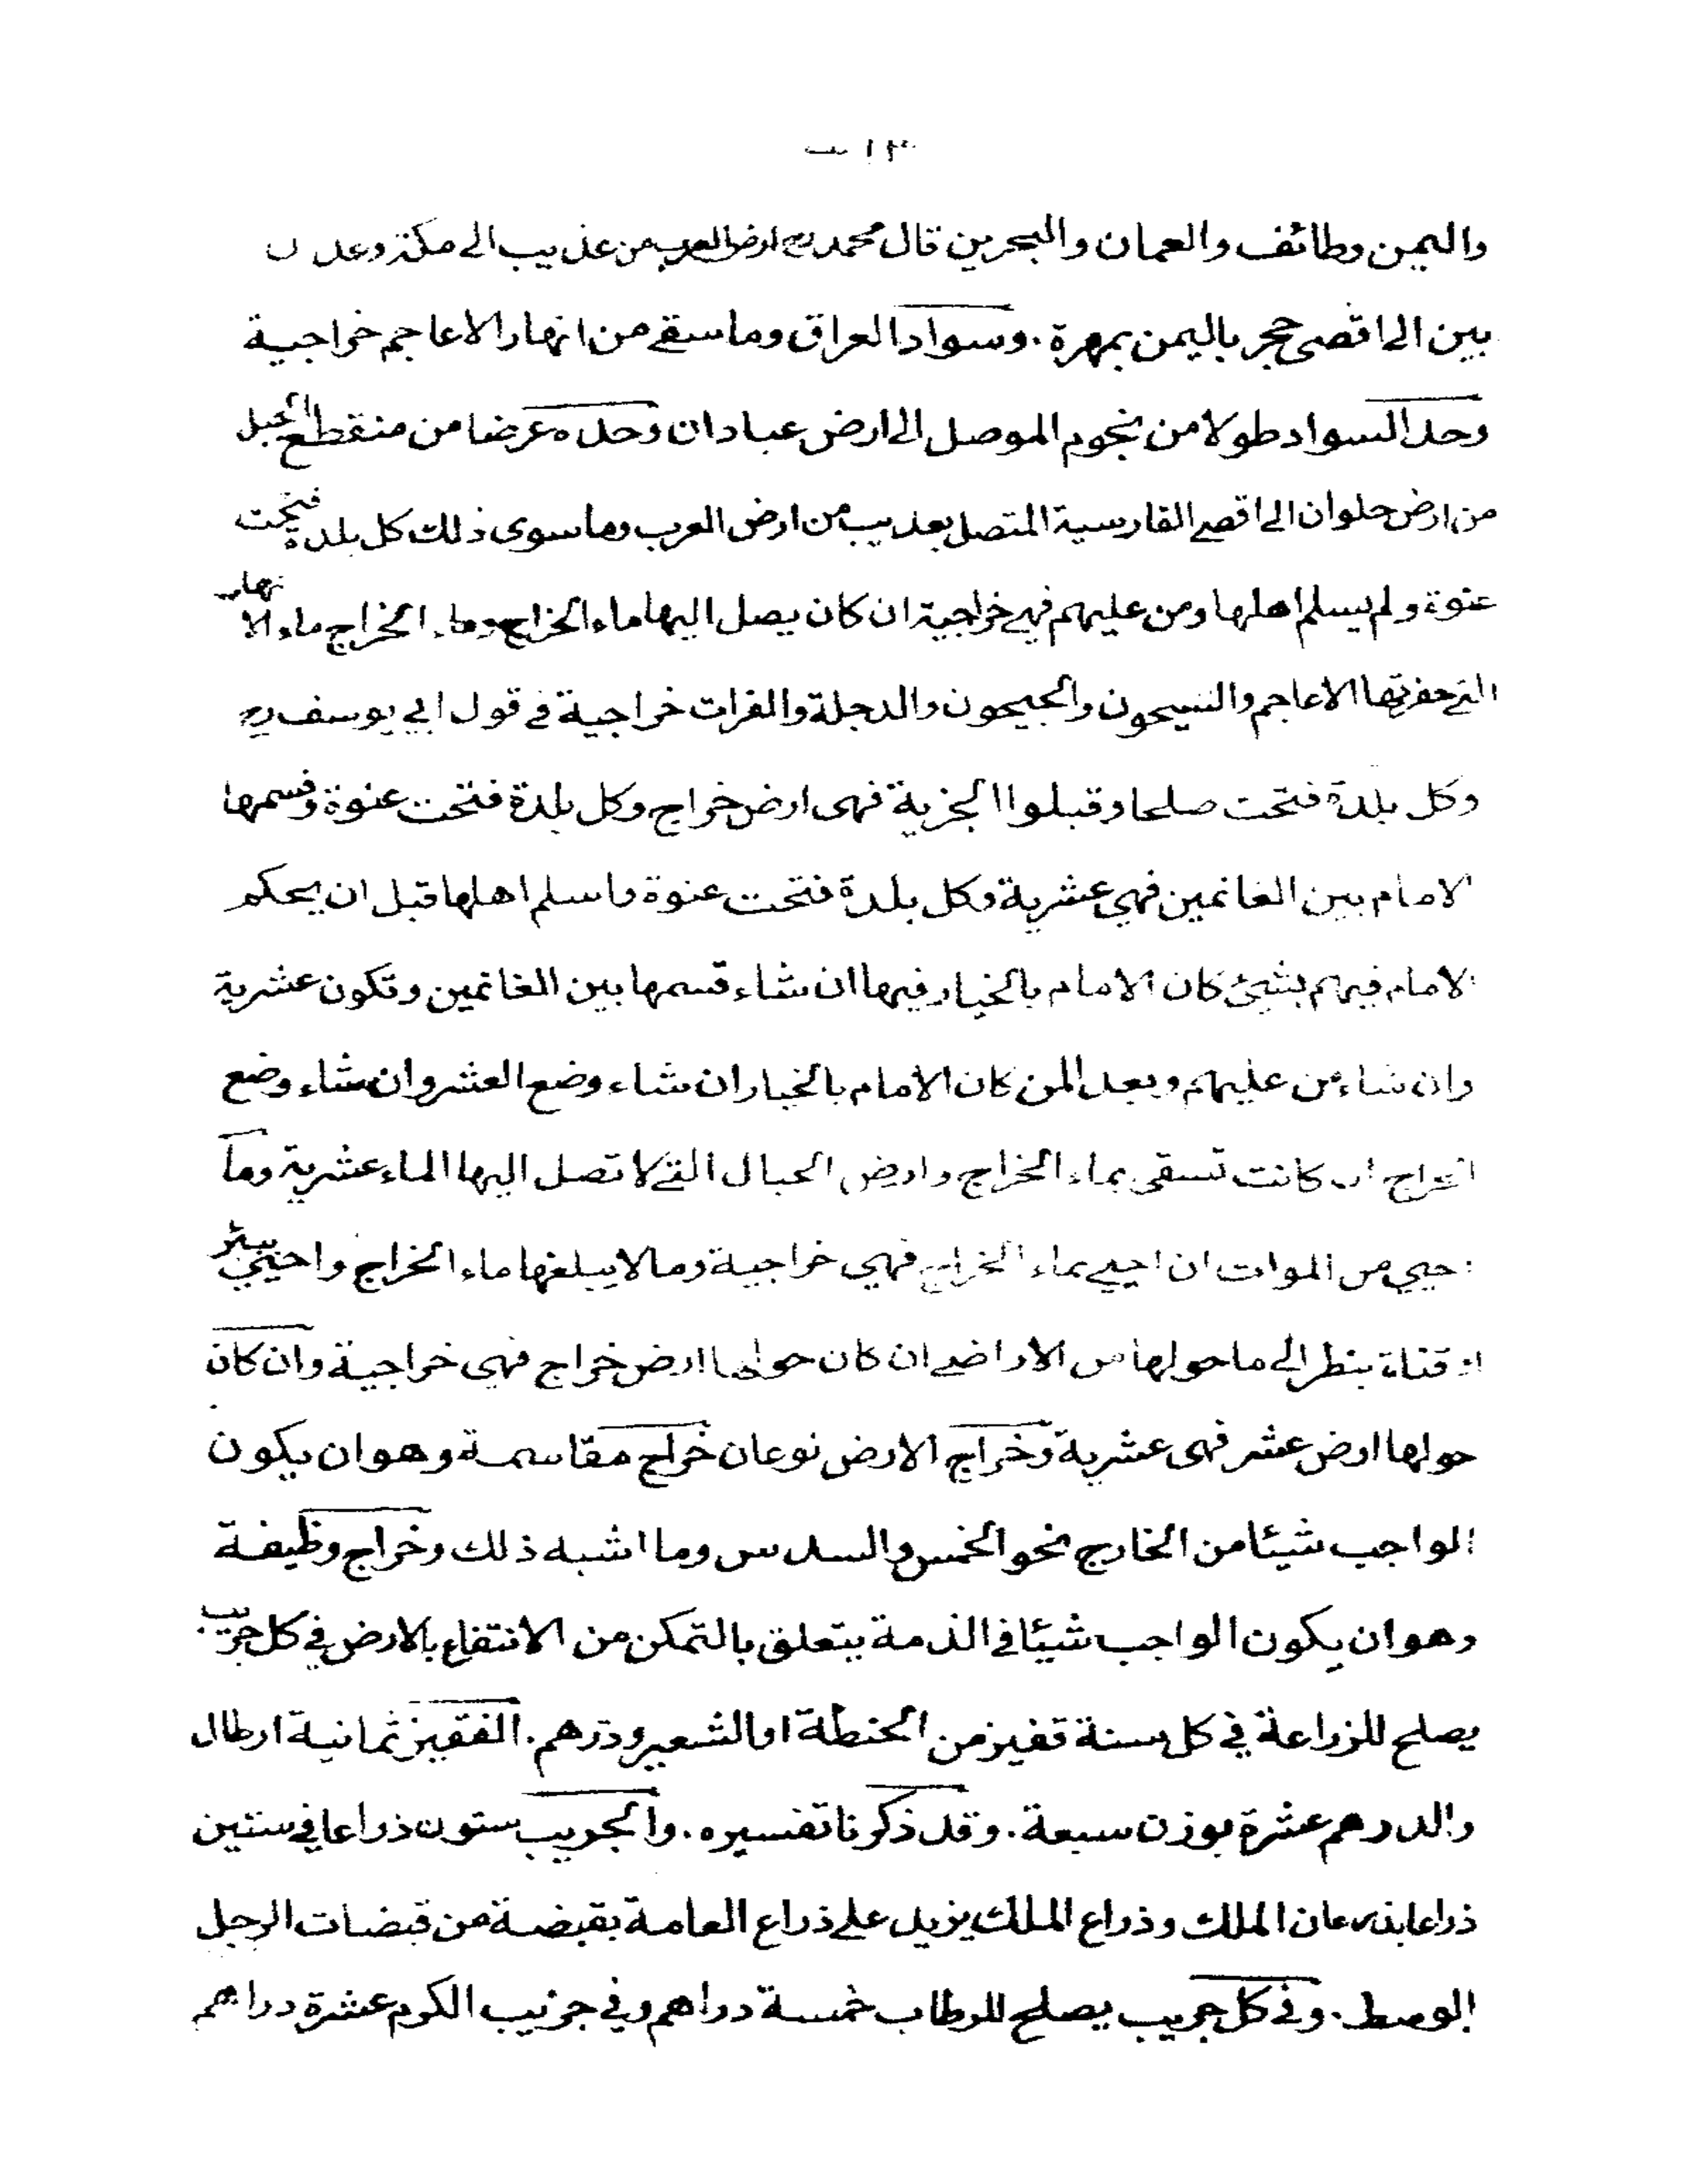 واليمن وطائف والعمان والبحرين قال محمد رح ارض العرب من عذيب الى مكة وعدن
بين الى اقصى حجر باليمن بمهرة . وسواد العراق وما سقي من انهار الاعاجم خراجية
وحد السواد طولا من تخوم الموصل الى ارض عبادان وحده عرضا من منقطع الجبل
من ارض حلوان الى اقصى القادسية المتصل بعذيب من ارض العرب وما سوى ذلك كل بلدة فتحت
عنوة ولم يسلم اهلها ومن عليهم فهي خراجية ان كان يصل اليها ماء الخراج وماء الخراج ماء الانهار
التي حفرتها الاعاجم والسيحون والجيحون والدجلة والفرات خراجية في قول ابي يوسف رح
وكل بلدة فتحت صلحا وقبلوا الجزية فهى ارض خراج وكل بلدة فتحت عنوة وقسمها
الامام بين الغانمين فهي عشرية وكل بلدة فتحت عنوة واسلم اهلها قبل ان يحكم
الامام فيهم بشيئ كان الامام بالخيار فيها ان شاء قسمها بين الغانمين وتكون عشرية
وان شاء من عليهم وبعد المن كان الامام بالخيار ان شاء وضع العشر وان شاء وضع
الخراج ان كانت تسقى بماء الخراج وارض الجبال التي لا تصل اليها الماء عشرية وما
احيي من الموات ان احيي بماء الخراج فهي خراجية وما لا يبلغها ماء الخراج واحيي ببئر
او قناة ينظر الى ما حولها من الاراضي ان كان حولها ارض خراج فهي خراجية وان كان
حولها ارض عشر فهى عشرية وخراج الارض نوعان خراج مقاسمة وهو ان يكون
الواجب شيئا من الخارج نحو الخمس والسدس وما اشبه ذلك وخراج وظيفة
وهو ان يكون الواجب شيئا في الذمة يتعلق بالتمكن من الانتفاع بالارض في كل جريب
يصلح للزراعة في كل سنة قفيز من الحنطة او الشعير ودرهم . القفيز ثمانية ارطال
والدرهم عشرة بوزن سبعة . وقد ذكرنا تفسيره . والجريب ستون ذراعا في ستين
ذراعا بذرعان الملك وذراع الملك يزيد على ذراع العامة بقبضة من قبضات الرجل
الوسط . وفي كل جريب يصلح للرطاب خمسة دراهم وفي جريب الكرم عشرة دراهم